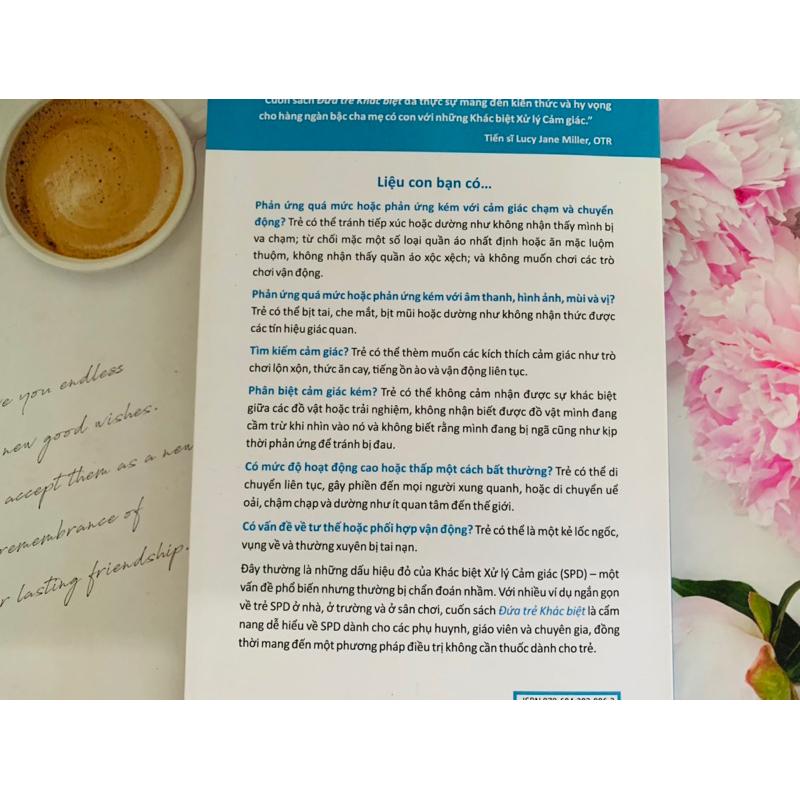 "Cuốn sách Đứa trẻ Khác biệt đã thực sự mang đến kiến thức và hy vọng
cho hàng ngàn bậc cha mẹ có con với những Khác biệt Xử lý Cảm giác."
Tiến sĩ Lucy Jane Miller, OTR
Liệu con bạn có...
Phản ứng quá mức hoặc phản ứng kém với cảm giác chạm và chuyển
động? Trẻ có thể tránh tiếp xúc hoặc dường như không nhận thấy mình bị
va chạm; từ chối mặc một số loại quần áo nhất định hoặc ăn mặc luộm
thuộm, không nhận thấy quần áo xộc xệch; và không muốn chơi các trò
chơi vận động.
Phản ứng quá mức hoặc phản ứng kém với âm thanh, hình ảnh, mùi và vị?
Trẻ có thể bịt tai, che mắt, bịt mũi hoặc dường như không nhận thức được
các tín hiệu giác quan.
Tìm kiếm cảm giác? Trẻ có thể thèm muốn các kích thích cảm giác như trò
chơi lộn xộn, thức ăn cay, tiếng ồn ào và vận động liên tục.
Phân biệt cảm giác kém? Trẻ có thể không cảm nhận được sự khác biệt
giữa các đồ vật hoặc trải nghiệm, không nhận biết được đồ vật mình đang
cầm trừ khi nhìn vào nó và không biết rằng mình đang bị ngã cũng như kịp
thời phản ứng để tránh bị đau.
Có mức độ hoạt động cao hoặc thấp một cách bất thường? Trẻ có thể di
chuyển liên tục, gây phiền đến mọi người xung quanh, hoặc di chuyển uể
oải, chậm chạp và dường như ít quan tâm đến thế giới.
Có vấn đề về tư thế hoặc phối hợp vận động? Trẻ có thể là một kẻ lốc ngốc,
vụng về và thường xuyên bị tai nạn.
Đây thường là những dấu hiệu đỏ của Khác biệt Xử lý Cảm giác (SPD) – một
vấn đề phổ biến nhưng thường bị chẩn đoán nhầm. Với nhiều ví dụ ngắn gọn
về trẻ SPD ở nhà, ở trường và ở sân chơi, cuốn sách Đứa trẻ Khác biệt là cẩm
nang dễ hiểu về SPD dành cho các phụ huynh, giáo viên và chuyên gia, đồng
thời mang đến một phương pháp điều trị không cần thuốc dành cho trẻ.
you endless
new good wishes.
accept them as a new
remembrance of
lasting friendship.